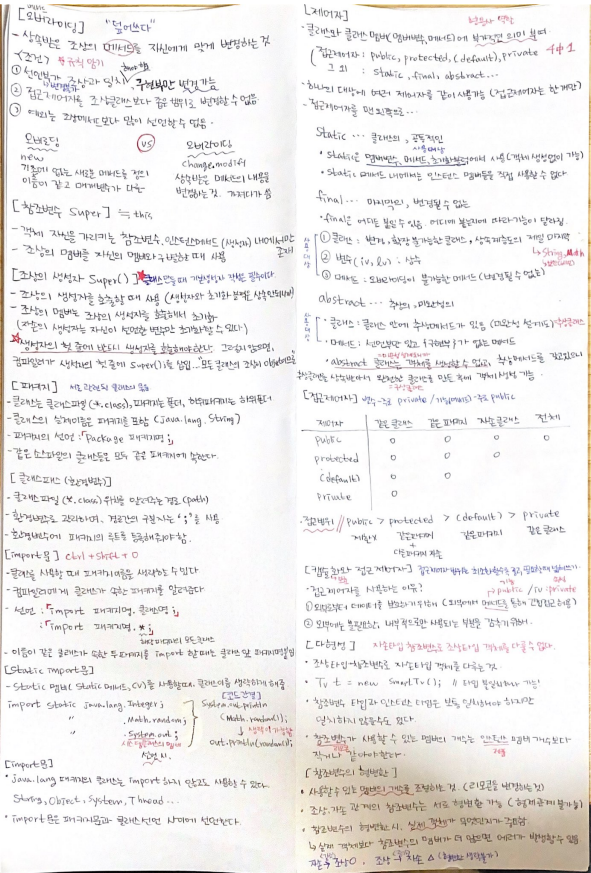 [오버라이딩] "덮어쓰다"
- 상속받은 조상의 메서드를 자신에게 맞게 변경하는 것
<조건>
① 선언부가 조상과 일치, 구현부만 변경가능
② 접근제어자를 조상클래스보다 좁은 범위로 변경할 수 없음
③ 예외는 조상메서드보다 많이 선언할 수 없음.
오버로딩 vs 오버라이딩
new change, modify
기존에 없는 새로운 메서드를 정의 상속받은 메서드의 내용을
이름이 같고 매개변수가 다른 변경하는 것.
[참조변수 Super] ≒ this
- 객체 자신을 가리키는 참조변수. 인스턴스메서드(생성자) 내에서만 존재
- 조상의 멤버를 자신의 멤버와 구별할 때 사용
[조상의 생성자 Super()]
- 조상의 생성자를 호출할 때 사용
- 조상의 멤버는 조상의 생성자를 호출해서 초기화
(자손의 생성자는 자신이 선언한 변수만 초기화할 수 있다)
생성자의 첫 줄에 반드시 생성자를 호출해야한다. 그렇지 않으면,
컴파일러가 생성자의 첫 줄에 super();를 삽입
[패키지] 서로 관련된 클래스의 묶음
- 클래스는 클래스파일(*.class), 패키지는 폴더, 하위패키지는 하위폴더
- 클래스의 실제이름은 패키지를 포함 (java.lang.String)
- 패키지의 선언 : 「Package 패키지명;」
- 같은 소스파일의 클래스들은 모두 같은 패키지에 속한다.
[클래스패스 (환경변수)]
- 클래스 파일(*.class) 위치를 알려주는 경로(path)
- 환경변수로 관리하며, 경로간의 구분자는 ';'을 사용
- 환경변수에 패키지의 루트를 등록해줘야함.
[import문] ctrl + shift + O
- 클래스를 사용할 때 패키지이름을 생략하는 수있다
- 컴파일러에게 클래스가 속한 패키지를 알려준다
- 선언 : 「import 패키지명.클래스명;」
: 「import 패키지명.*;」
해당패키지의 모든클래스
- 이름이 같은 클래스가 속한 두 패키지를 import 할 때는 클래스 앞 패키지명붙임
[Static import문]
- Static 멤버(Static메서드, CV)를 사용할때 클래스이름 생략하게 해줌
import static java.lang.Integer; System.out.println
" Math.random; (Math.random());
" System.out; 생략이 가능함
out.println(random());
[import문]
• java.lang 패키지의 클래스는 import 하지 않고도 사용할 수 있다.
String, Object, System, Thread ...
• import문은 패키지문과 클래스선언 사이에 선언한다.
[제어자]
- 클래스와 클래스 멤버(멤버변수, 메서드)에 부가적인 의미 부여
접근제어자 : public, protected, (default), private 4中1
그 외 : static, final, abstract...
- 하나의 대상에 여러 제어자를 같이 사용가능 (접근제어자는 한 개만)
- 접근제어자를 맨 왼쪽으로...
static ... 클래스의, 공통적인
• static은 멤버변수, 메서드, 초기화블럭에서 사용 (객체 생성없이 가능)
• static 메서드 내에서는 인스턴스 멤버들을 직접 사용할 수 없다
final... 마지막의, 변경될 수 없는
• final은 어디든 붙일 수 있음 어디에 붙는지에 따라 기능이 달라짐.
① 클래스 : 변경, 확장 불가능한 클래스, 상속계층도의 제일 마지막
String, Math
② 변수 (iv, lv) : 상수
③ 메서드 : 오버라이딩이 불가능한 메서드 (변경될 수 없는)
abstract... 추상의, 미완성의
• 클래스 : 클래스 안에 추상메서드가 있음 (미완성 설계도) 추상클래스
• 메서드 : 선언부만 있고 {구현부}가 없는 메서드
• abstract 클래스는 객체를 생성할 수 없고,
[접근제어자]
제어자 같은 클래스 같은 패키지 자손클래스 전체
public O O O O
protected O O O
(default) O O
private O
접근범위 // public > protected > (default) > private
제한X 같은패키지 같은패키지 같은 클래스
+
다른패키지 자손
[캡슐화와 접근제어자]
- 접근제어자를 사용하는 이유?
① 외부로부터 데이터를 보호하기 위해
② 외부에는 불필요한, 내부적으로만 사용되는 부분을 감추기 위해.
[다형성] 자손타입 참조변수로 조상타입 객체를 다룰수 없다.
• 조상타입 참조변수로 자손타입 객체를 다루는 것.
• Tv t = new SmartTv(); // 타입 불일치해도 가능!
• 참조변수 타입과 인스턴스 타입은 보통 일치해야 하지만
일치하지 않을수도 있다.
• 참조변수가 사용할 수 있는 멤버의 개수는 인스턴스 멤버 개수보다
작거나 같아야한다.
[참조변수의 형변환]
• 사용할 수 있는 멤버의 개수를 조절하는 것. (리모콘을 변경하는 것)
• 조상, 자손 관계의 참조변수는 서로 형변환 가능 (형제관계 불가능)
• 참조변수의 형변환 시, 실제 객체가 무엇인지가 중요함
↳ 실제 객체보다 참조변수의 멤버가 더 많으면 에러가 발생할 수 있음